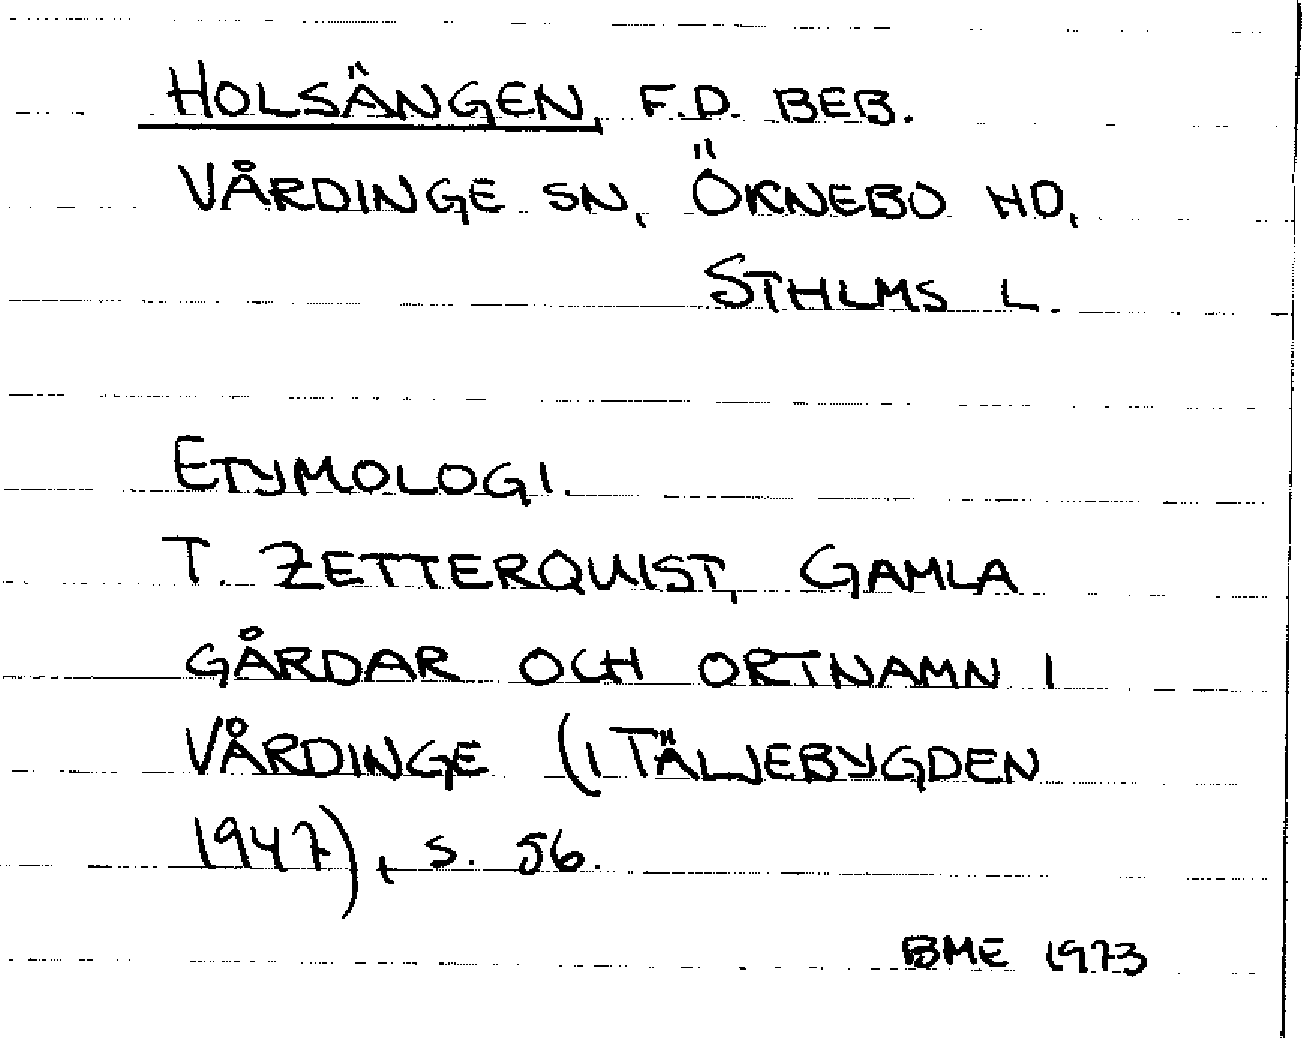 HOLSÄNGEN, F.D. BEB.
VÅRDINGE SN, ÖKNEBO HD,
STHLMS L.
ETYMOLOGI.
T. ZETTERQUIST, GAMLA
GÅRDAR OCH ORTNAMN I
VÅRDINGE (I TÄLJEBYGDEN
1947), S. 56.
BME 1973